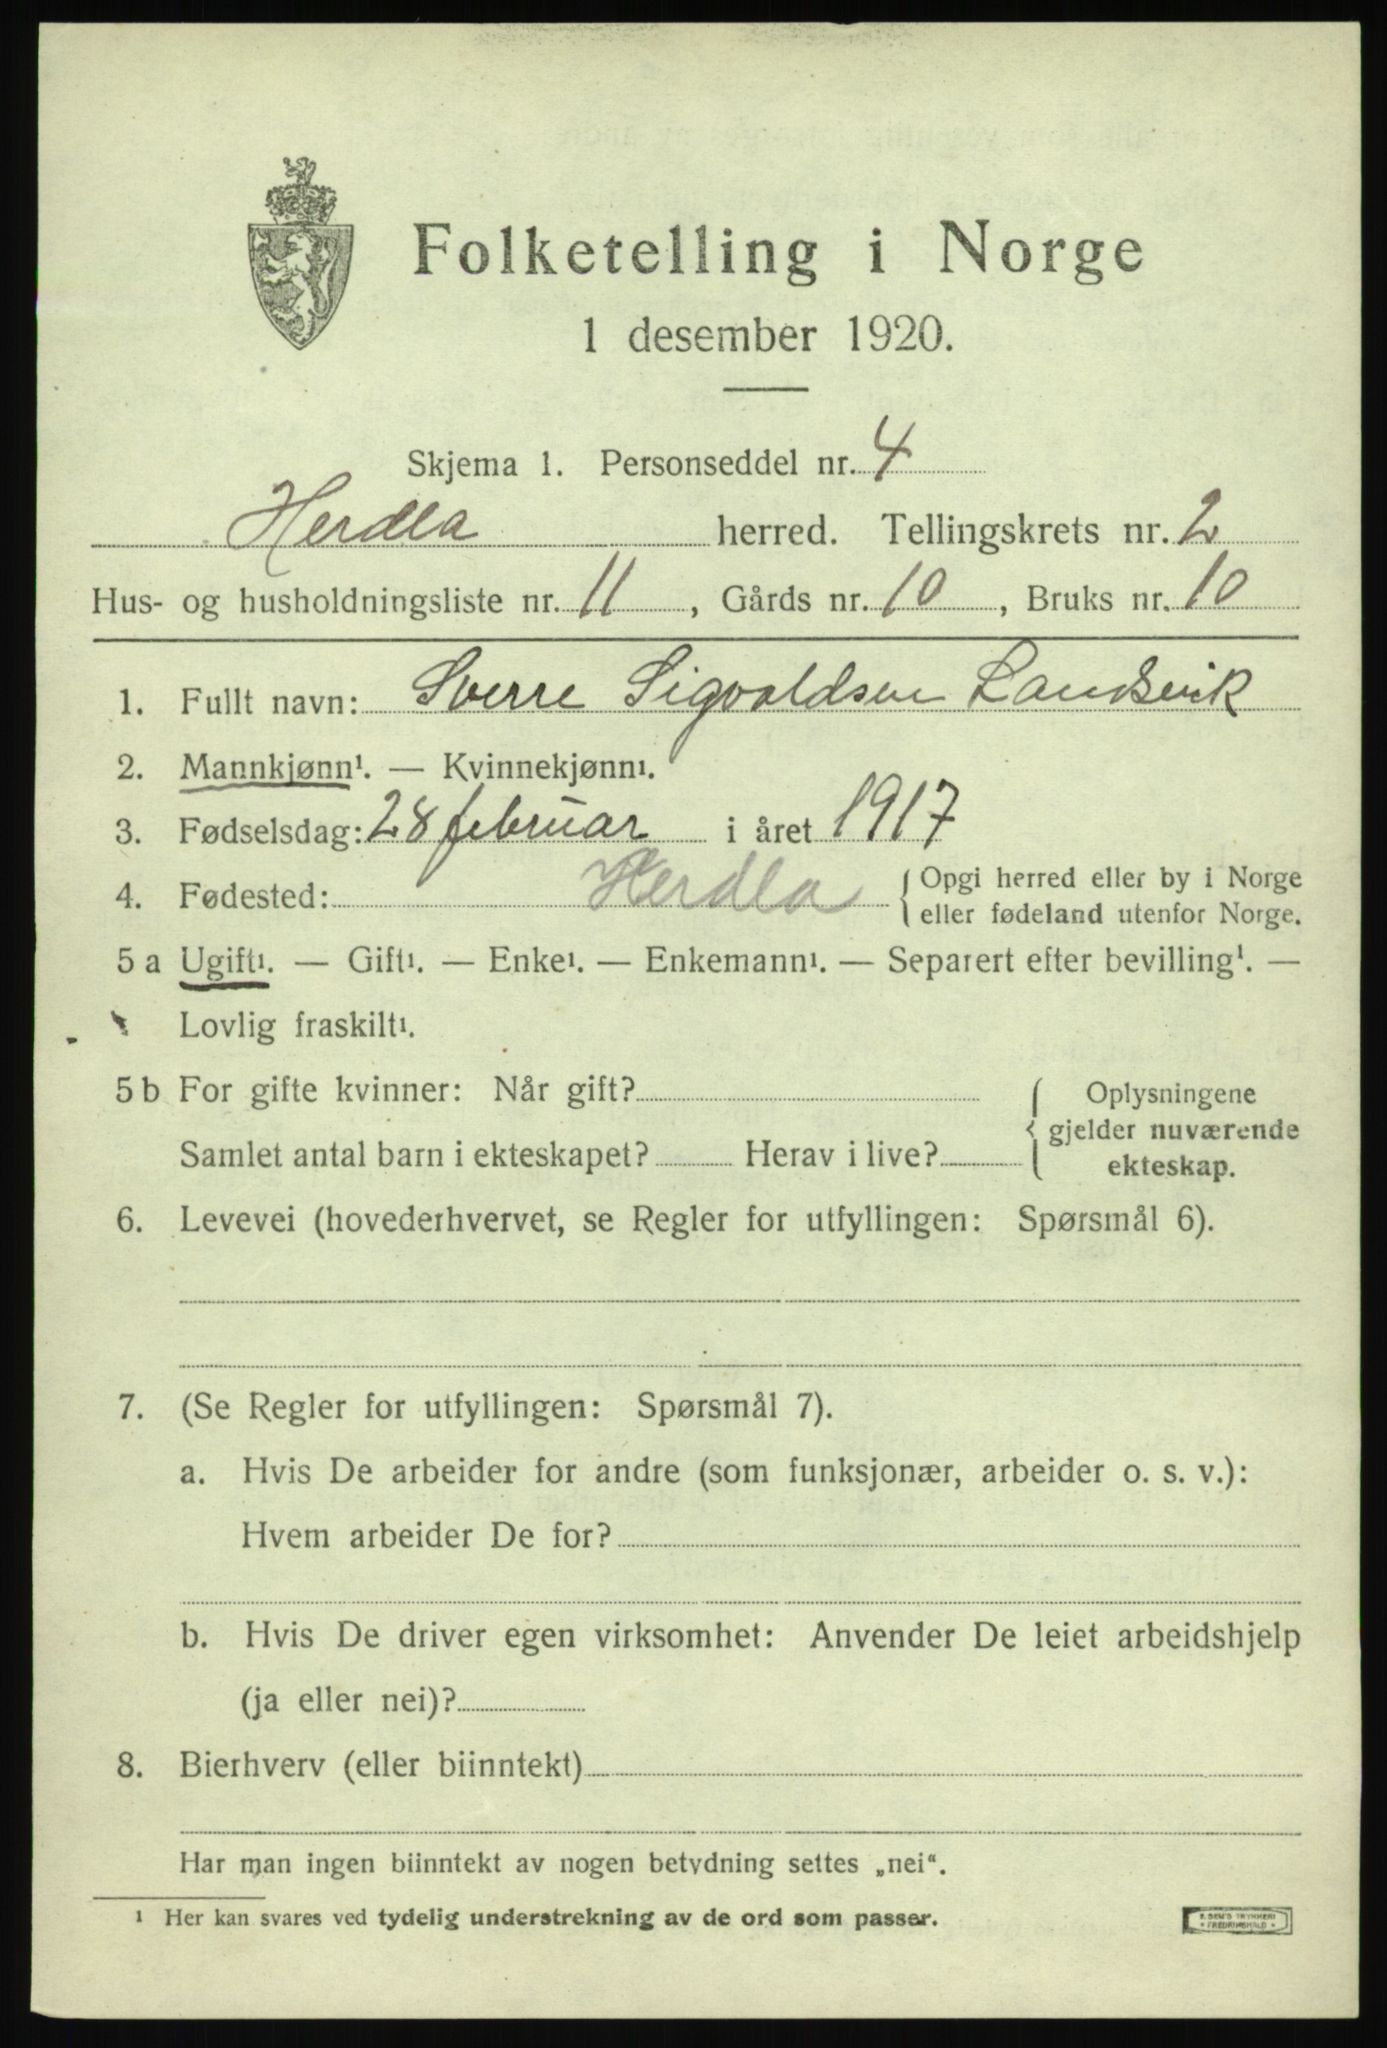 Folketelling i Norge
1 desember 1920.
Skjema 1. Personseddel nr. 4
Herdla herred. Tellingskrets nr. 2
Hus- og husholdningsliste nr. 11, Gårds nr. 10, Bruks nr. 10
1. Fullt navn: Sverre Sigvaldsen Landsvik
2. Mannkjønn¹. — Kvinnekjønn¹.
3. Fødselsdag: 28 februar i året 1917
4. Fødested: Herdla { Opgi herred eller by i Norge
eller fødeland utenfor Norge.
5 a Ugift¹. — Gift¹. — Enke¹. — Enkemann¹. — Separert efter bevilling¹. —
Lovlig fraskilt¹.
5 b For gifte kvinner: Når gift?
Samlet antal barn i ekteskapet? Herav i live?
{ Oplysningene
gjelder nuværende
ekteskap.
6. Levevei (hovederhvervet, se Regler for utfyllingen: Spørsmål 6).
7. (Se Regler for utfyllingen: Spørsmål 7).
a. Hvis De arbeider for andre (som funksjonær, arbeider o. s. v.):
Hvem arbeider De for?
b. Hvis De driver egen virksomhet: Anvender De leiet arbeidshjelp
(ja eller nei)?
8. Bierhverv (eller biinntekt)
Har man ingen biinntekt av nogen betydning settes „nei“.
¹ Her kan svares ved tydelig understrekning av de ord som passer.
E. SEM'S TRYKKERI
• FREDRIKSHALD •